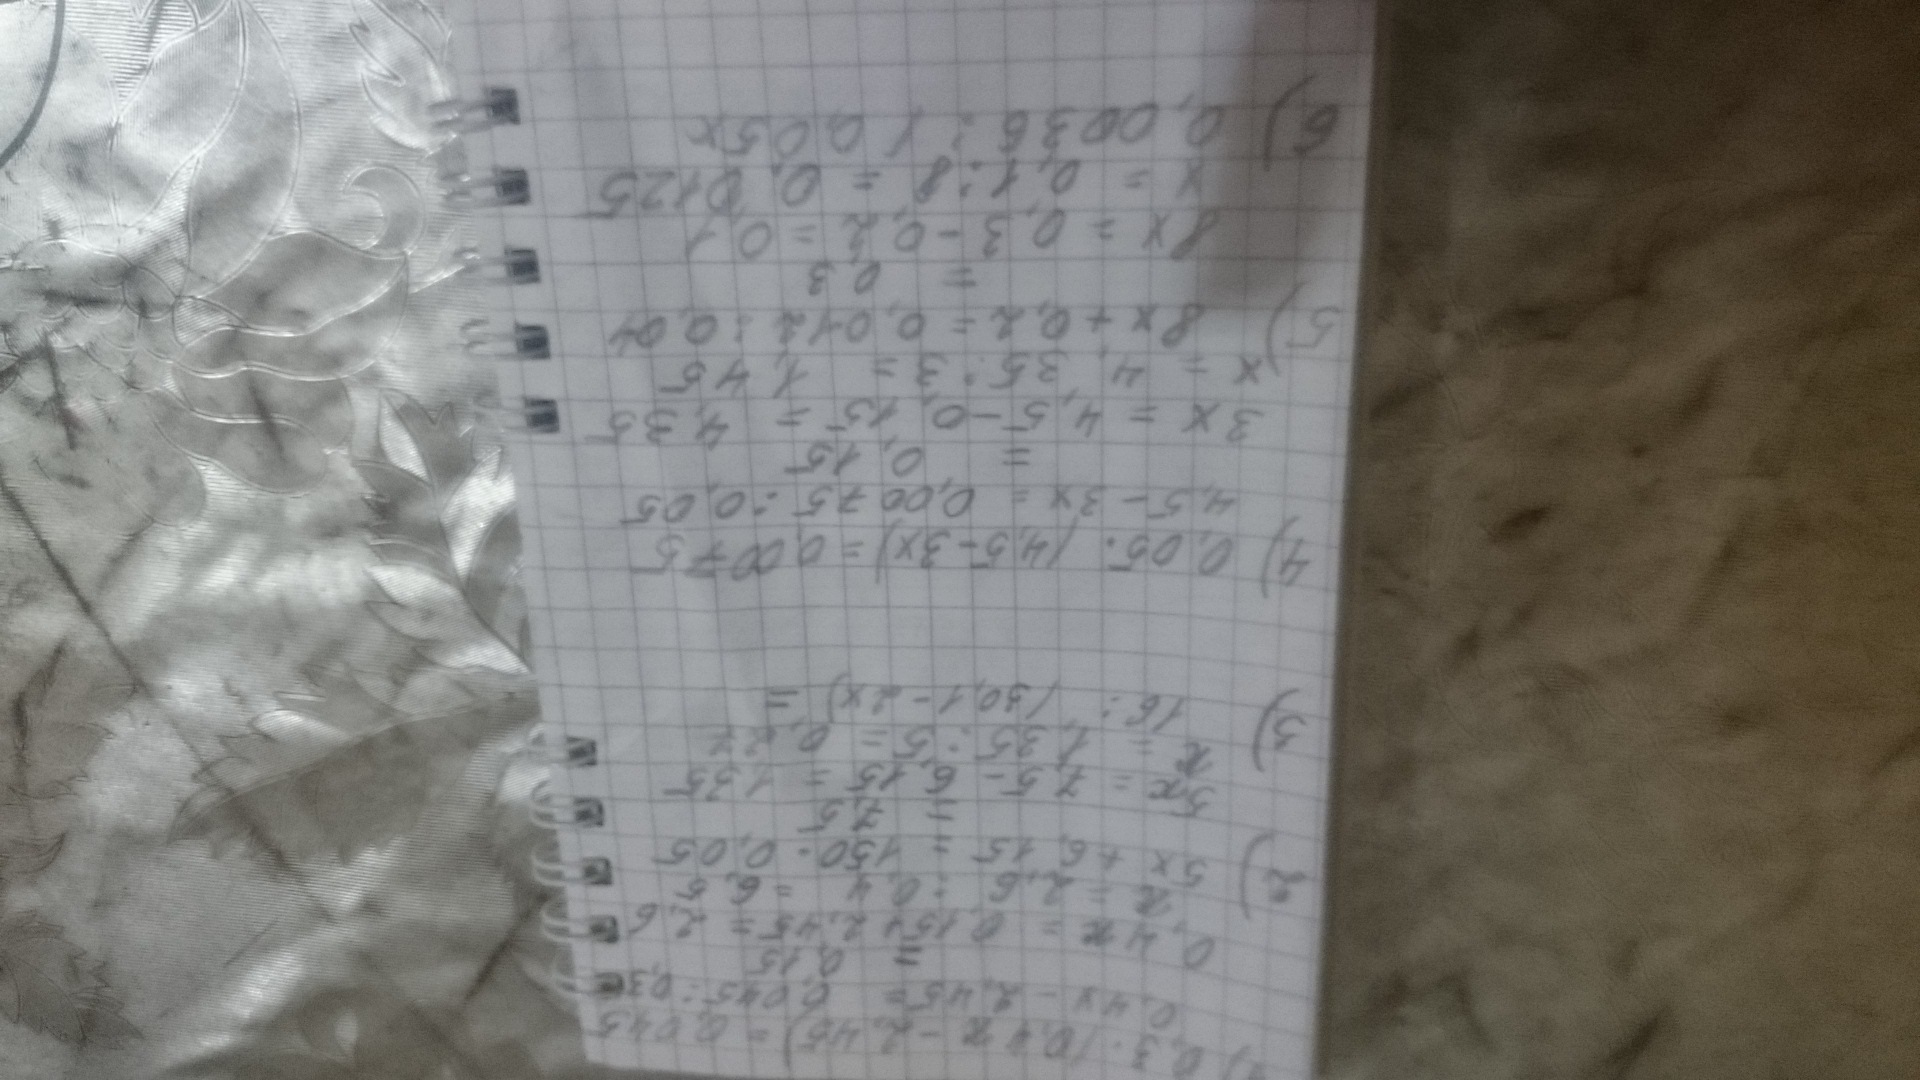 1) 0,3 · (0,4x - 2,45) = 0,045
0,4x - 2,45 = 0,045 : 0,3
= 0,15
0,4x = 0,15+2,45 = 2,6
x = 2,6 : 0,4 = 6,5
2) 5x + 6,15 = 150 · 0,05
= 7,5
5x = 7,5 - 6,15 = 1,35
x = 1,35 : 5 = 0,27
3) 16 : (30,1 - 2x) =
4) 0,05 · (4,5 - 3x) = 0,0075
4,5 - 3x = 0,0075 : 0,05
= 0,15
3x = 4,5 - 0,15 = 4,35
x = 4,35 : 3 = 1,45
5) 8x + 0,2 = 0,012 : 0,04
= 0,3
8x = 0,3 - 0,2 = 0,1
x = 0,1 : 8 = 0,0125
6) 0,0036 : (0,05x